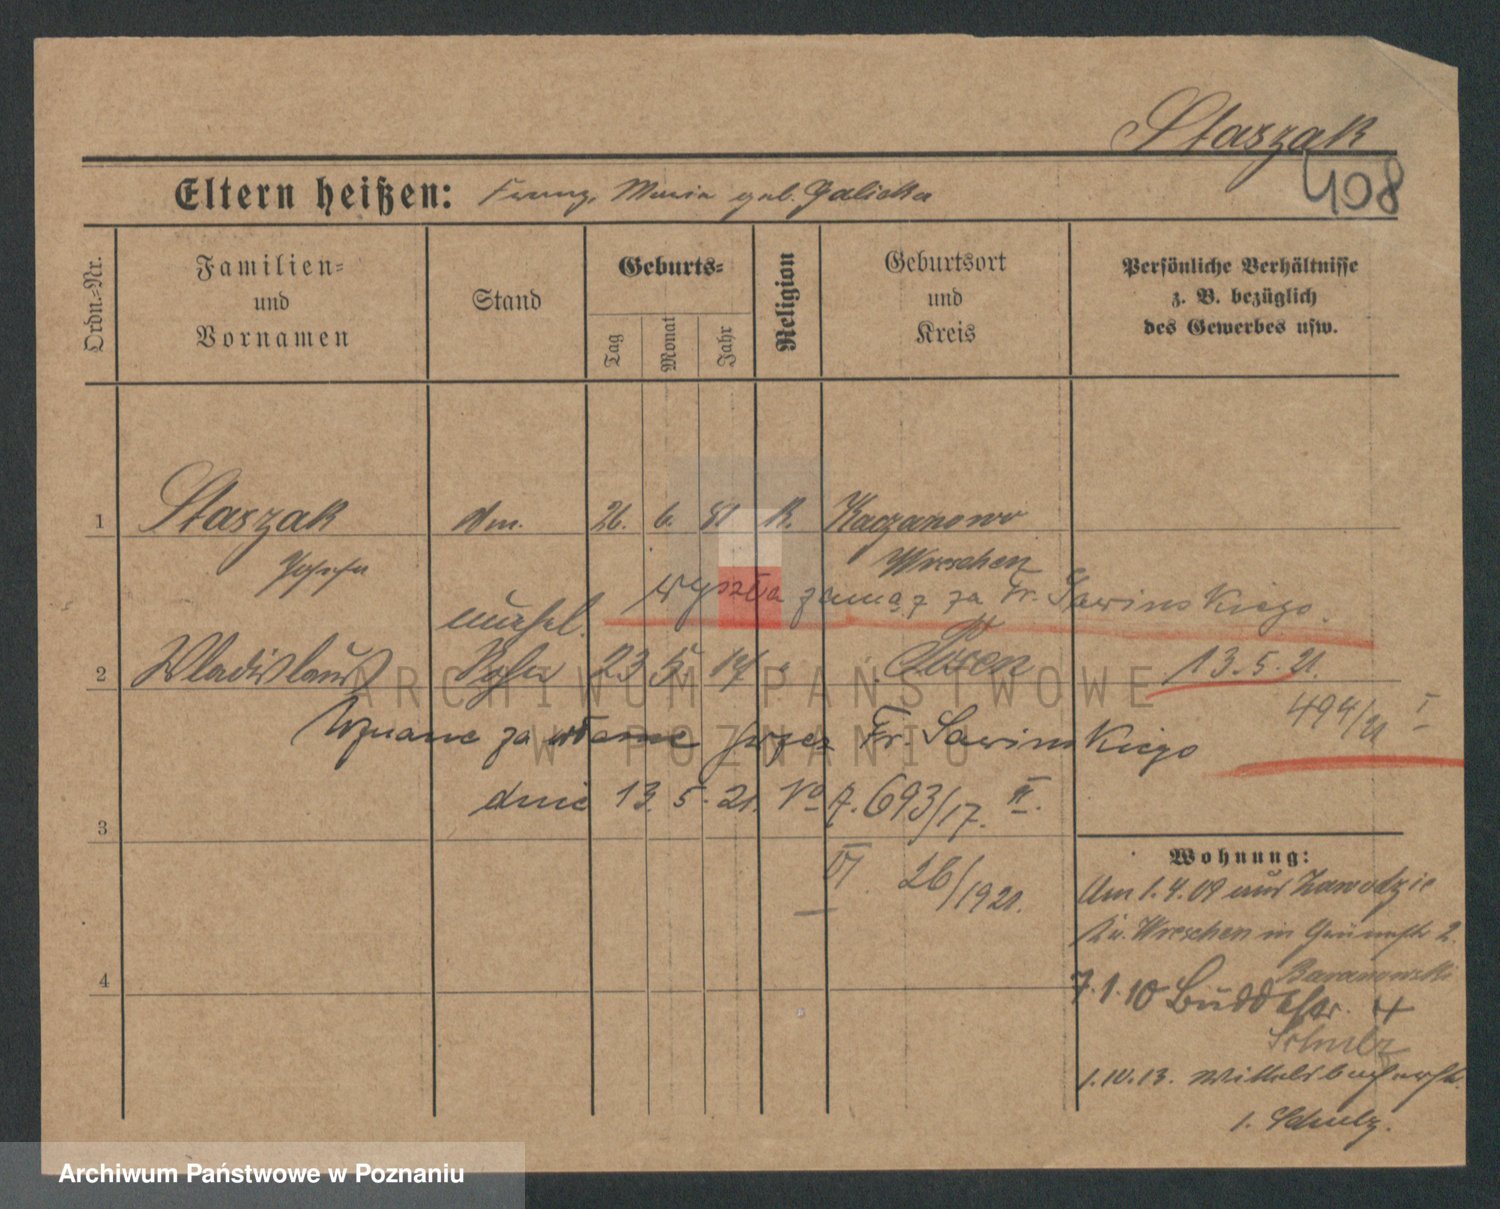 Staszak
408
Eltern heißen: Franz, Maria geb. Galicka
Ordn.-Nr.
Familien-
und
Vornamen
Stand
Geburts-
Tag
Monat
Jahr
Religion
Geburtsort
und
Kreis
Persönliche Verhältnisse
z. B. bezüglich
des Gewerbes usw.
1 Staszak dm. 26. 6. 81 K. Kaczanowo
Josefa Wreschen
wyszła zamąż za Fr. Sawinskiego.
unehel.
2 Wladislaus Sohn 23 5. 17 " Posen 13. 5. 21.
494/21 I
Uznane za własne przez Fr. Sawinskiego
dnie 13. 5. 21. No A. 693/17. II.
3
VI 26/1921.
Wohnung:
Am 1.4.09 aus Zawodzie
Kr. Wreschen in Grünestr 2.
Baranowski
4
7.1.10 Buddestr. 4
Schulz
1.10.13. Wittelsbacherstr.
1. Schulz.
ARCHIWUM PAŃSTWOWE
W POZNANIU
Archiwum Państwowe w Poznaniu